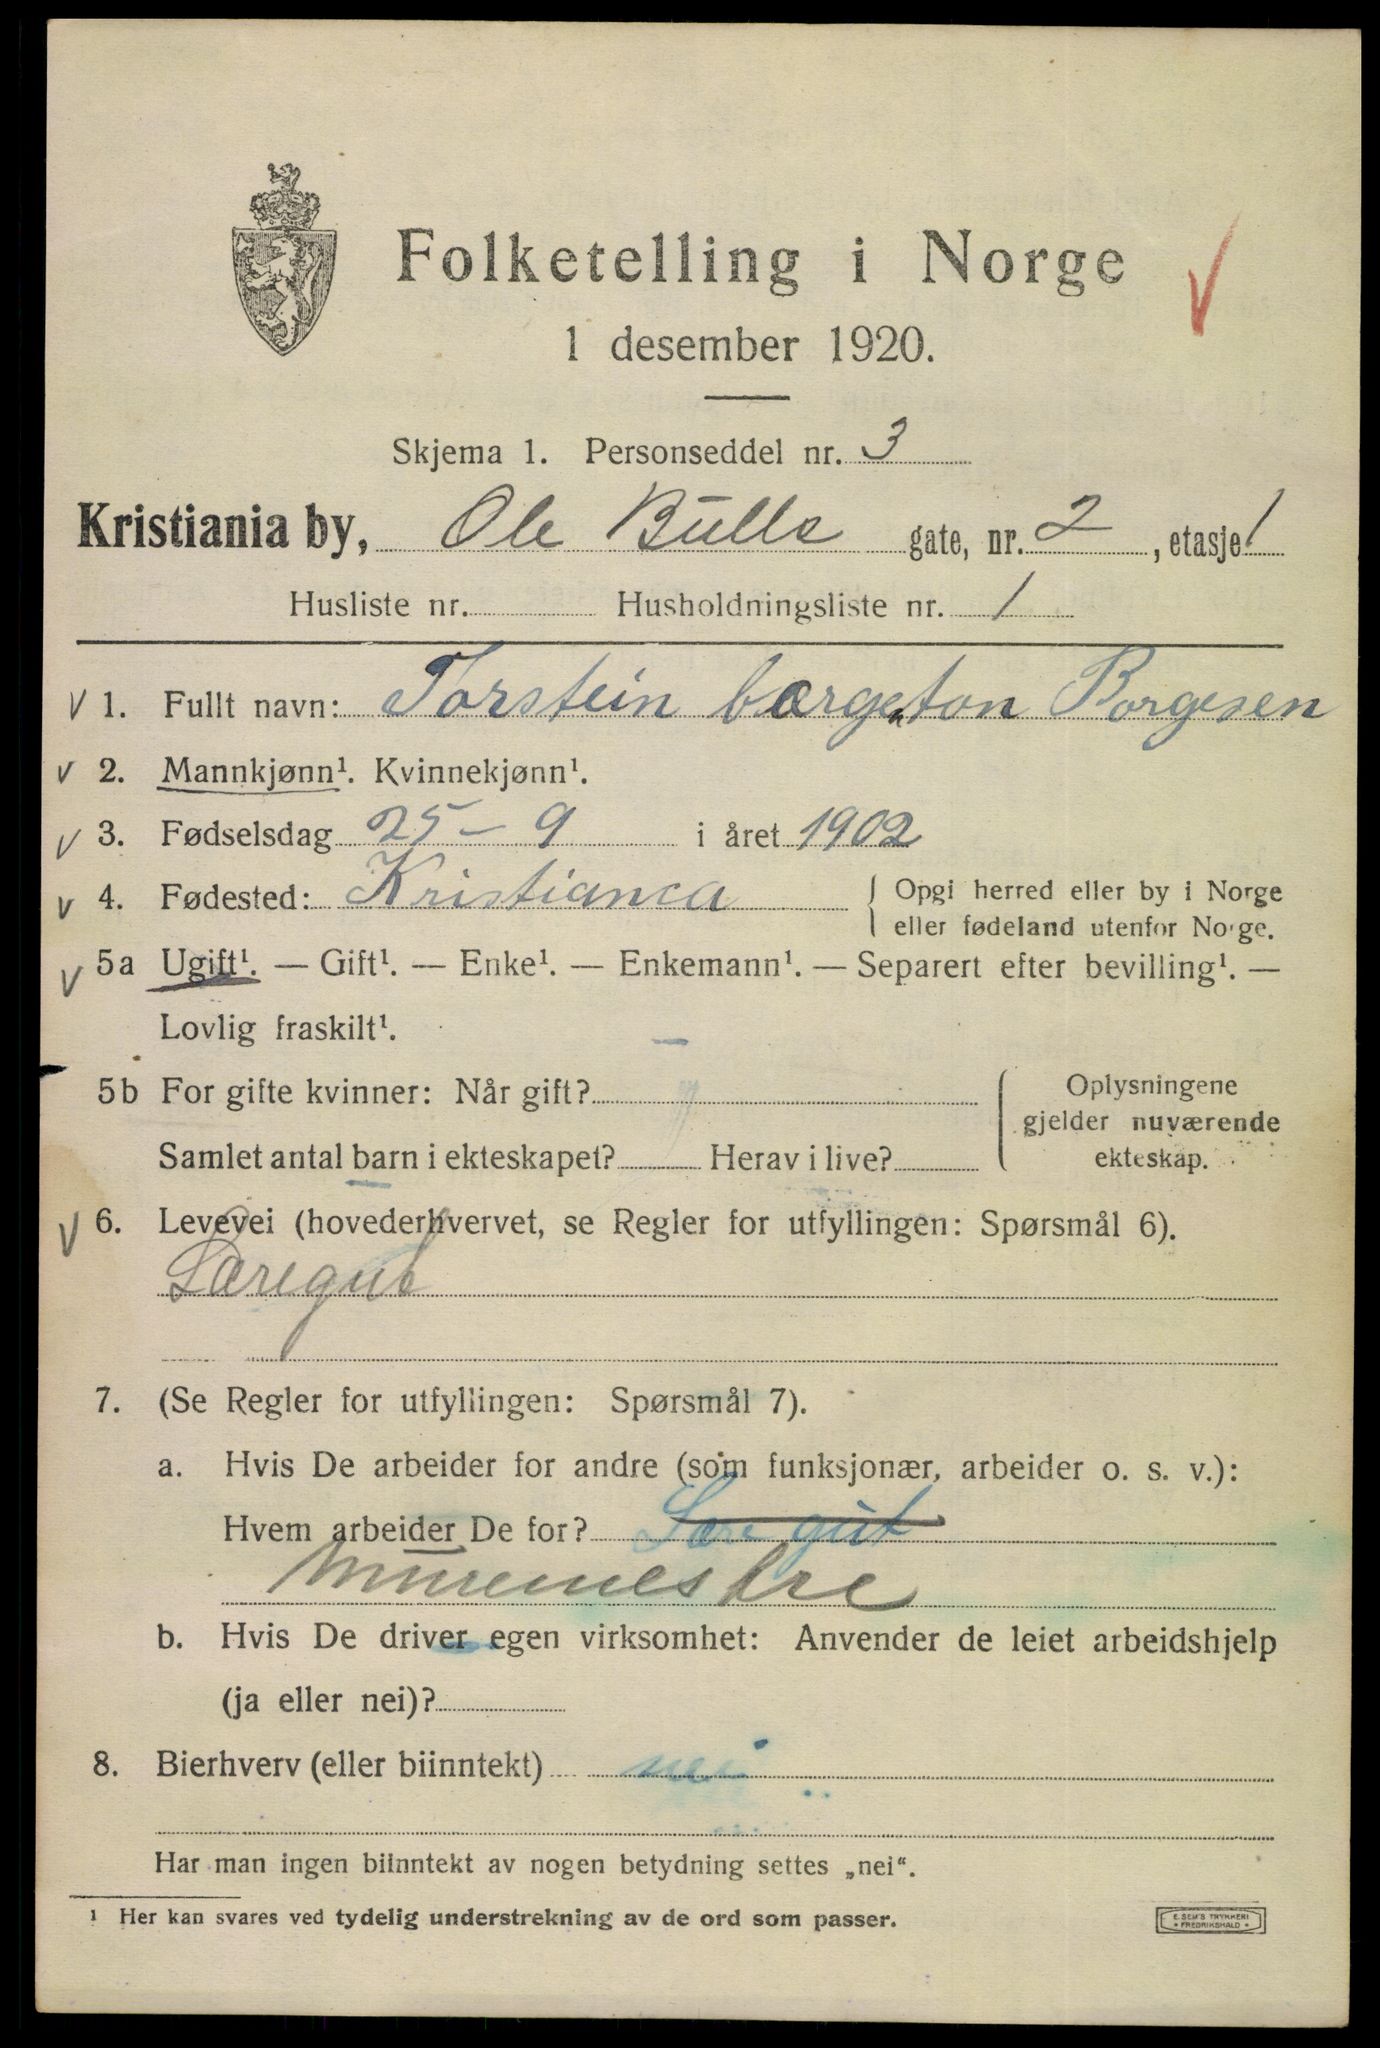 Folketelling i Norge
1 desember 1920.
Skjema 1. Personseddel nr. 3
Kristiania by, Ole Bulls gate, nr. 2, etasje 1
Husliste nr. Husholdningsliste nr. 1
V 1. Fullt navn: Torstein Borgesen
V 2. Mannkjønn¹. Kvinnekjønn¹.
V 3. Fødselsdag 25 – 9 i året 1902
V 4. Fødested: Kristiania { Opgi herred eller by i Norge
eller fødeland utenfor Norge.
V 5a Ugift¹. — Gift¹. — Enke¹. — Enkemann¹. — Separert efter bevilling¹. —
Lovlig fraskilt¹.
5b For gifte kvinner: Når gift? { Oplysningene
gjelder nuværende
Samlet antal barn i ekteskapet? Herav i live? ekteskap.
V 6. Levevei (hovederhvervet, se Regler for utfyllingen: Spørsmål 6).
Læregut
7. (Se Regler for utfyllingen: Spørsmål 7).
a. Hvis De arbeider for andre (som funksjonær, arbeider o. s. v.):
Hvem arbeider De for? Lære gut
Muremestre
b. Hvis De driver egen virksomhet: Anvender de leiet arbeidshjelp
(ja eller nei)?
8. Bierhverv (eller biinntekt) nei
Har man ingen biinntekt av nogen betydning settes „nei“.
¹ Her kan svares ved tydelig understrekning av de ord som passer.
E. SEM'S TRYKKERI
• FREDRIKSHALD •